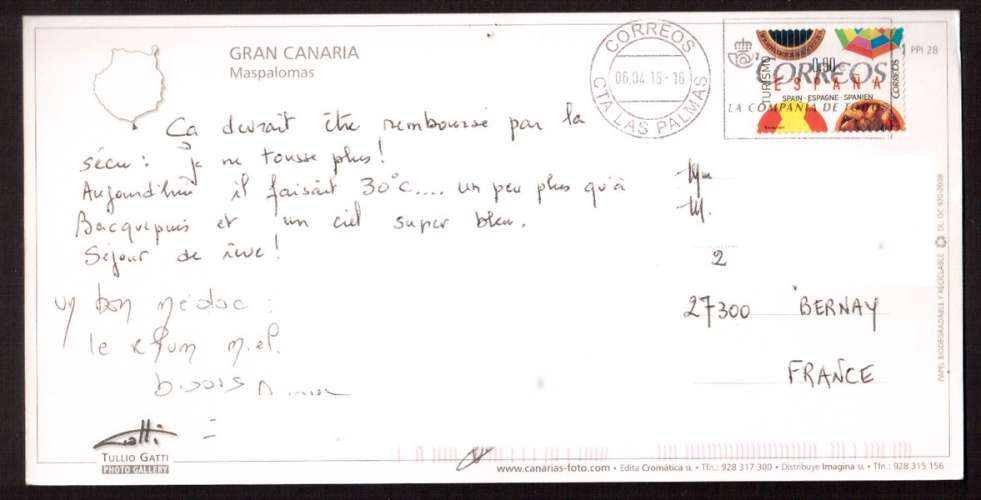 GRAN CANARIA
Maspalomas
CORREOS
06.04.15-16
CTA LAS PALMAS
TURISMO
0,90€
CORREOS
ESPAÑA
SPAIN · ESPAGNE · SPANIEN
LA COMPAÑIA DE TODOS
CORREOS
PPI 28
Ca devrait être remboursé par la
sécu : je ne tousse plus !
Aujourd'hui il faisait 30°c.... un peu plus qu'à
Bacquepuis et un ciel super bleu.
Séjour de rêve !
un bon médoc :
le rhum miel.
bisous
Mme
M.
2
27300 BERNAY
FRANCE
Gatti
TULLIO GATTI
PHOTO GALLERY
www.canarias-foto.com • Edita Cromática SL • Tfn.: 928 317 300 • Distribuye Imagina SL • Tfn.: 928 315 156
PAPEL BIODEGRADABLE Y RECICLABLE DL: GC-920-2008